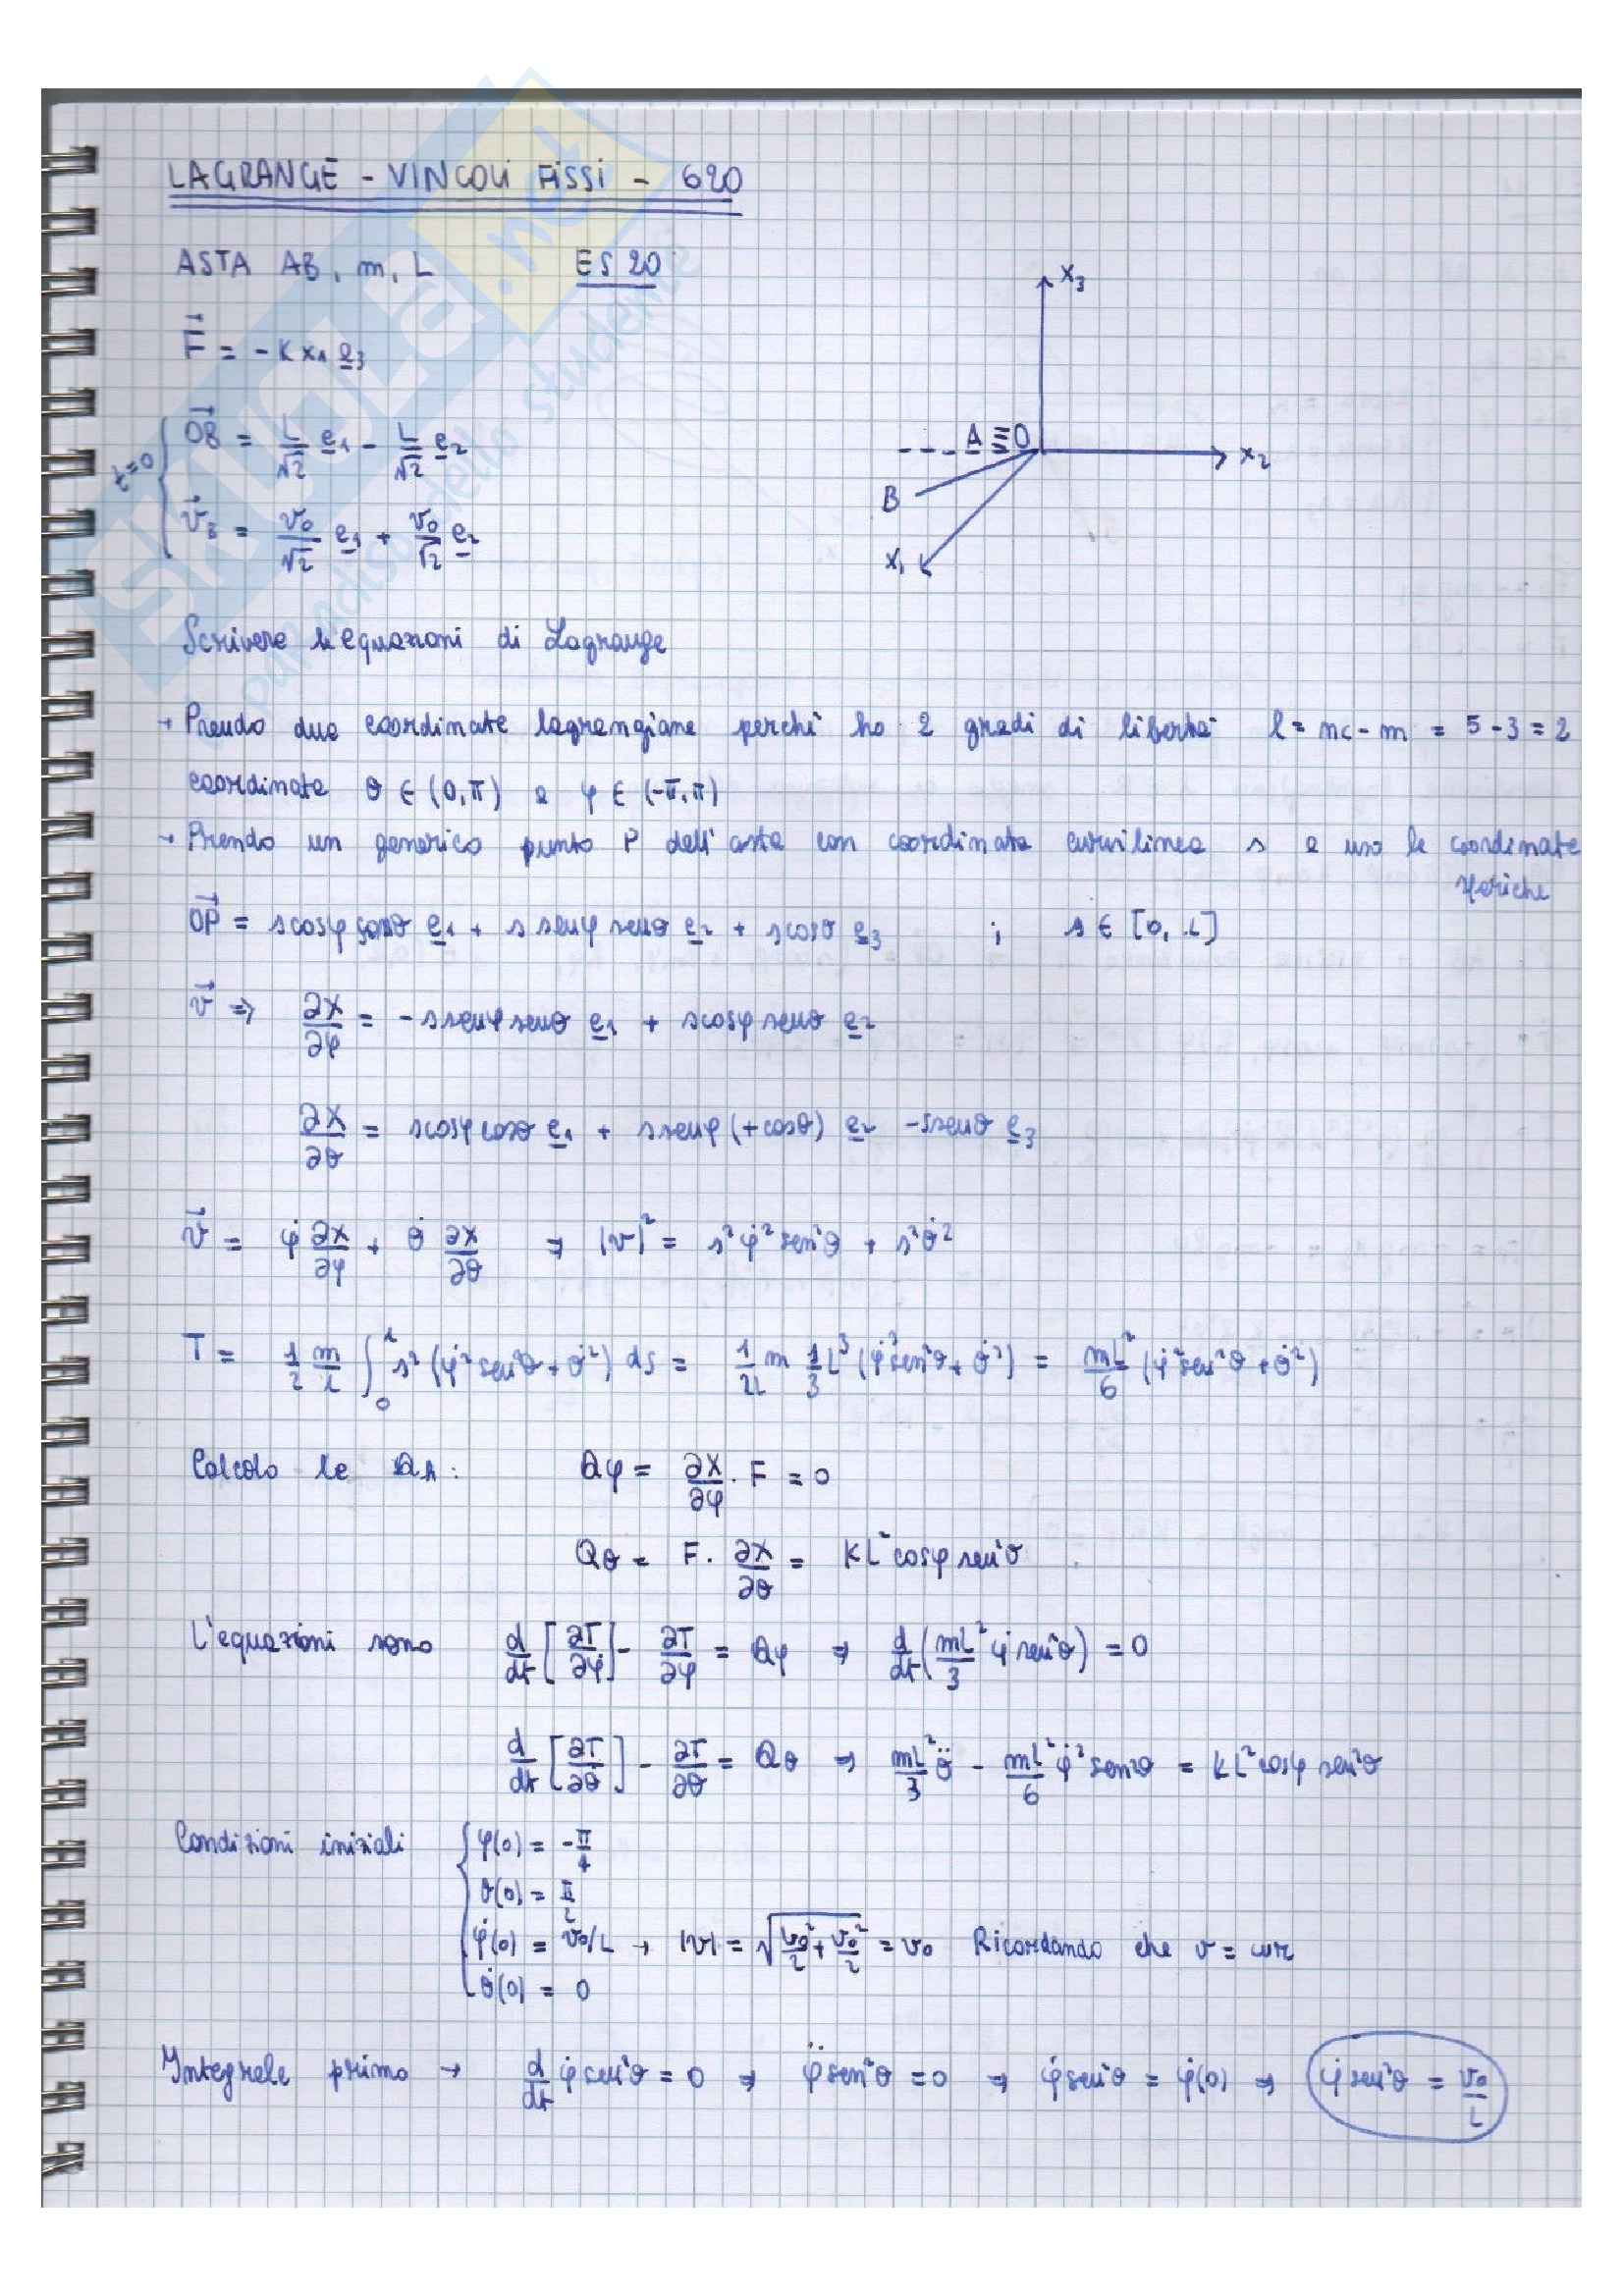 LAGRANGE - VINCOLI FISSI - 620
ASTA AB, m, L ES 20
F = -K x₁ e₃
x₃
t=0
OB = L/√2 e₁ - L/√2 e₂
A ≡ O
x₂
B
v_B = v₀/√2 e₁ + v₀/√2 e₂
x₁
Scrivere le equazioni di Lagrange
→ Prendo due coordinate lagrangiane perché ho 2 gradi di libertà l = nc - m = 5 - 3 = 2
coordinate θ ∈ (0,π) e φ ∈ (-π,π)
→ Prendo un generico punto P dell'asta con coordinata curvilinea s e uso le coordinate
sferiche
OP = s cosφ senθ e₁ + s senφ senθ e₂ + s cosθ e₃ ; s ∈ [0, L]
v ⇒ ∂X/∂φ = -s senφ senθ e₁ + s cosφ senθ e₂
∂X/∂θ = s cosφ cosθ e₁ + s senφ (+cosθ) e₂ - s senθ e₃
v = φ̇ ∂X/∂φ + θ̇ ∂X/∂θ ⇒ |v|² = s² φ̇² sen²θ + s² θ̇²
T = 1/2 m/L ∫₀ᴸ s² (φ̇² sen²θ + θ̇²) ds = 1/2L m 1/3 L³ (φ̇² sen²θ + θ̇²) = mL²/6 (φ̇² sen²θ + θ̇²)
Calcolo le Qₕ: Qφ = ∂X/∂φ · F = 0
Qθ = F · ∂X/∂θ = KL² cosφ sen²θ
L'equazioni sono d/dt [∂T/∂φ̇] - ∂T/∂φ = Qφ ⇒ d/dt (mL²/3 φ̇ sen²θ) = 0
d/dt [∂T/∂θ̇] - ∂T/∂θ = Qθ ⇒ mL²/3 θ̈ - mL²/6 φ̇² sen2θ = KL² cosφ sen²θ
Condizioni iniziali { φ(0) = -π/4
θ(0) = π/2
φ̇(0) = v₀/L → |v| = √(v₀²/2 + v₀²/2) = v₀ Ricordando che v = ωr
θ̇(0) = 0
Integrale primo → d/dt φ̇ sen²θ = 0 ⇒ φ̈ sen²θ = 0 ⇒ φ̇ sen²θ = φ̇(0) ⇒ φ̇ sen²θ = v₀/L